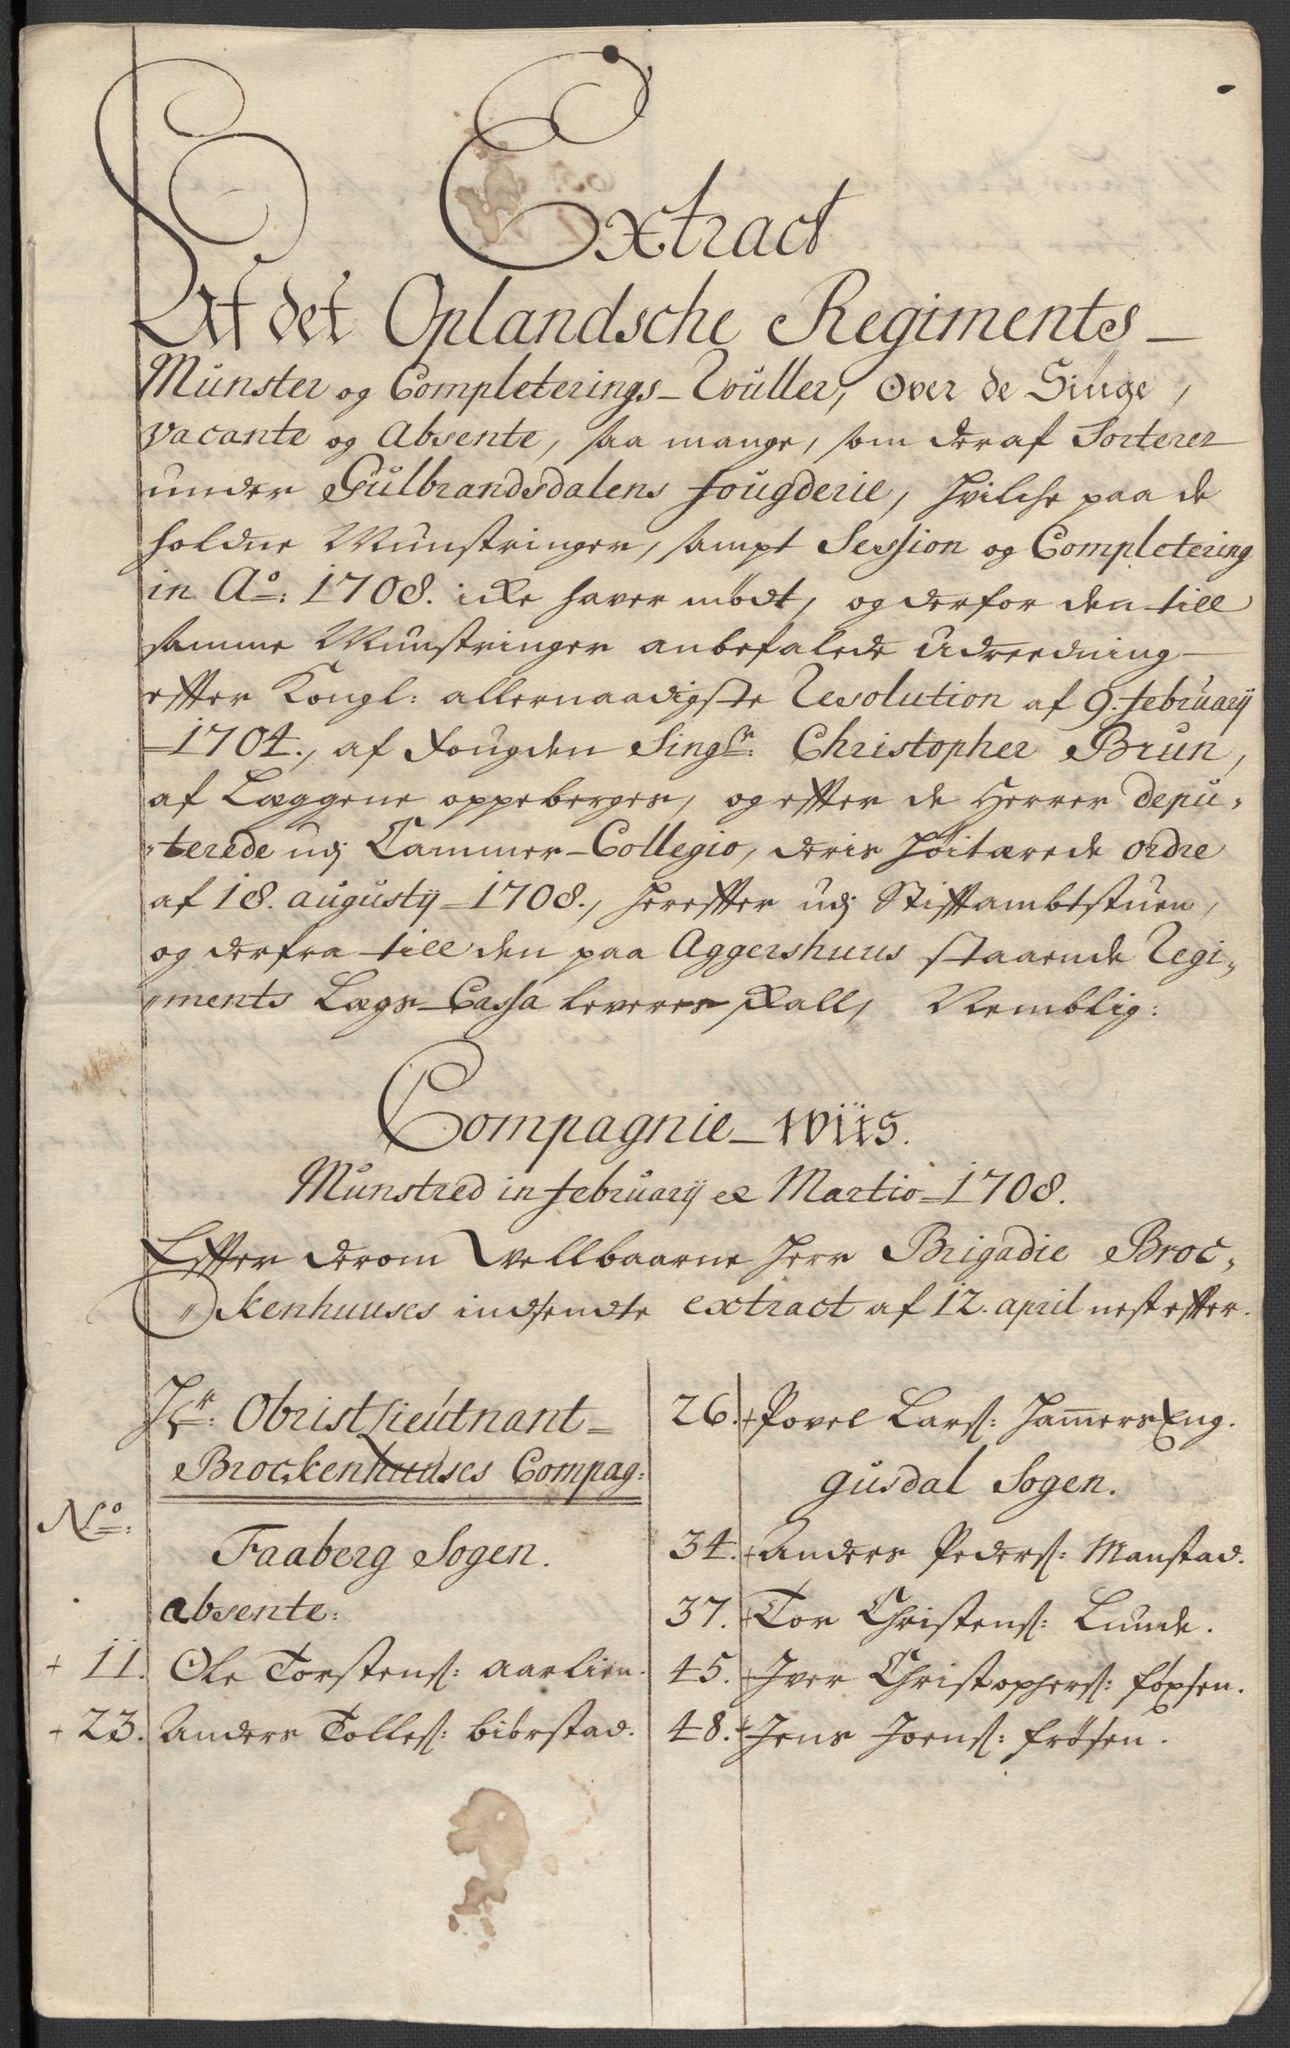 Extract
Af det Oplandsche Regiments
Munster og Completerings-Roüller, over de Siuge,
vacante og Absente, saa mange, som deraf Sorterer
under Gulbrandsdalens fougderie, hvilche paa de
holdne Munstringer, sampt Session og Completering
in Ao: 1708. icke haver mødt, og derfor den till
samme Munstringer anbefalede Udreedning
effter Kongl: allernaadigste Resolution af 9. february
1704., af Fougden Singr: Christopher Brun,
af Læggene oppeberger, og effter de Herrer depu-
terede udj Cammer-Collegio, deris høitærede ordre
af 18. augusty 1708., hereffter udj Stifftambtstuen,
og derfra till den paa Aggershuus staaende Regi-
ments Lægs-Cassa leveres skall, Nemblig:
Compagnie-wiis.
Münstred in february et Martio 1708.
Effter derom Vellbaarne Herr Brigadie Broc-
kenhuuses indsendte extract af 12. april nest effter.
Hr: Obristlieutnant
Brockenhuuses Compag:
No:
Faaberg Sogen.
absente:
+ 11. Ole Torstens: Aarlien.
+ 23. Anders Tolles: biørstad.
26. + Povel Lars: Hamers Eng.
gusdal Sogen.
34. + Anders Peders: Manstad.
37. + Tor Christens: Lunde.
45. + Iver Christophers:
48. + Jens Joens: frøsen.